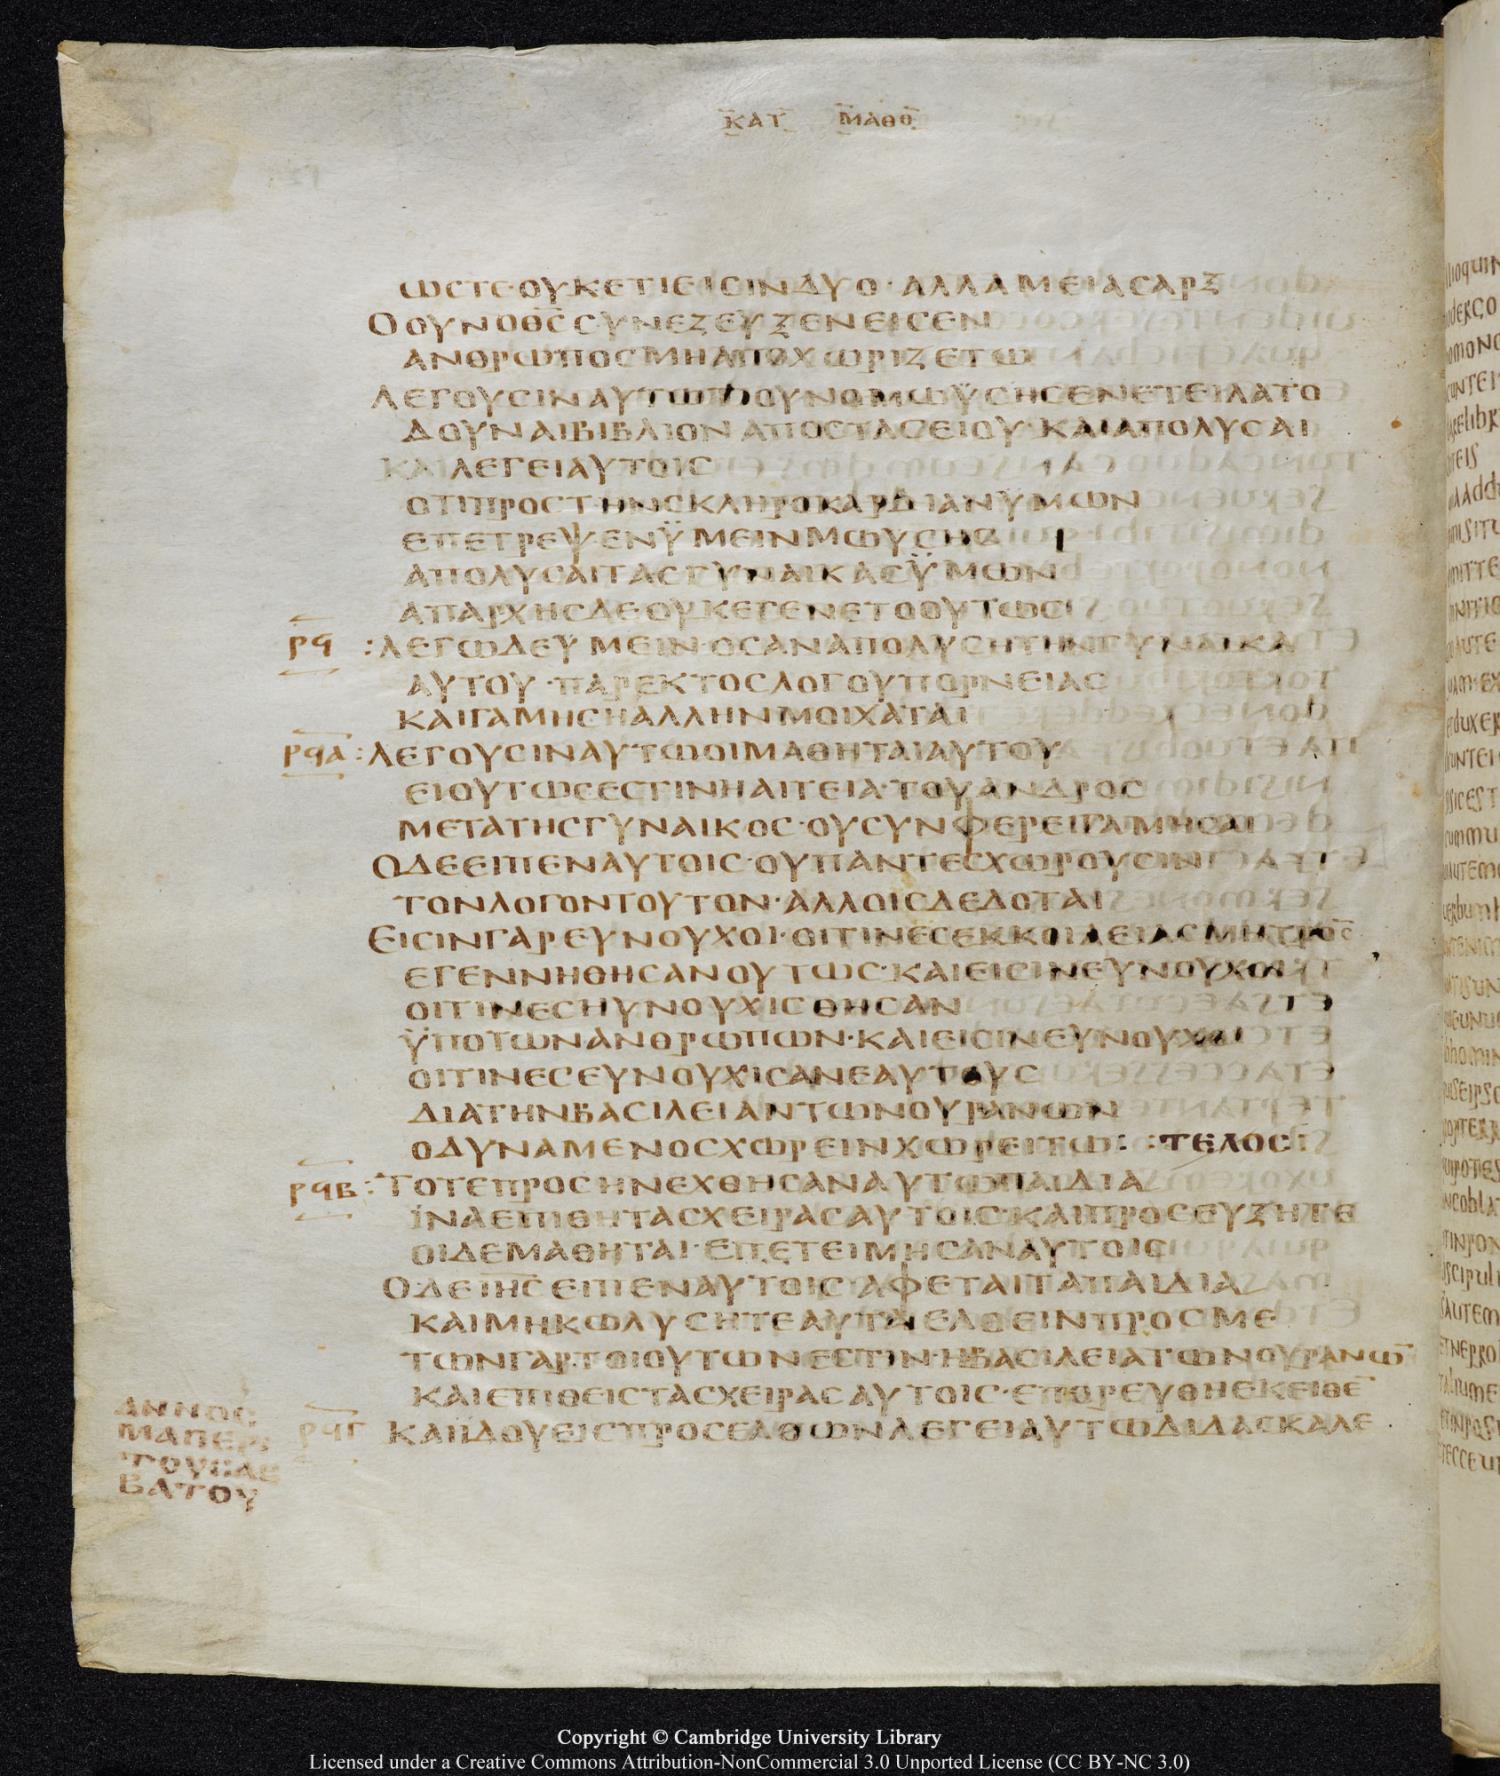 ΚΑΤ ΜΑΘΘ
ΩΣΤΕΟΥΚΕΤΙΕΙΣΙΝΔΥΟ · ΑΛΛΑΜΕΙΑΣΑΡΞ
ΟΟΥΝΟΘΣΣΥΝΕΖΕΥΞΕΝΕΙΣΕΝ
ΑΝΘΡΩΠΟΣΜΗΑΠΟΧΩΡΙΖΕΤΩ
ΛΕΓΟΥΣΙΝΑΥΤΩ ΟΥΝΟΜΩΫΣΗΣΕΝΕΤΕΙΛΑΤΟ
ΔΟΥΝΑΙΒΙΒΛΙΟΝΑΠΟΣΤΑΣΕΙΟΥ · ΚΑΙΑΠΟΛΥΣΑΙ
ΚΑΙΛΕΓΕΙΑΥΤΟΙΣ
ΟΤΙΠΡΟΣΤΗΝΣΚΛΗΡΟΚΑΡΔΙΑΝΫΜΩΝ
ΕΠΕΤΡΕΨΕΝΫΜΕΙΝΜΩΥΣΗΣ
ΑΠΟΛΥΣΑΙΤΑΣΓΥΝΑΙΚΑΣΫΜΩΝ
ΑΠΑΡΧΗΣΔΕΟΥΚΕΓΕΝΕΤΟΟΥΤΩΣ
ΡϤ : ΛΕΓΩΔΕΫΜΕΙΝ · ΟΣΑΝΑΠΟΛΥΣΗΤΗΝΓΥΝΑΙΚΑ
ΑΥΤΟΥ · ΠΑΡΕΚΤΟΣΛΟΓΟΥΠΟΡΝΕΙΑΣ
ΚΑΙΓΑΜΗΣΗΑΛΛΗΝΜΟΙΧΑΤΑΙ
ΡϤΑ : ΛΕΓΟΥΣΙΝΑΥΤΩΟΙΜΑΘΗΤΑΙΑΥΤΟΥ
ΕΙΟΥΤΩΣΕΣΤΙΝΗΑΙΤΕΙΑ · ΤΟΥΑΝΔΡΟΣ
ΜΕΤΑΤΗΣΓΥΝΑΙΚΟΣ · ΟΥΣΥΝΦΕΡΕΙΓΑΜΗΣΑΙ
ΟΔΕΕΙΠΕΝΑΥΤΟΙΣ · ΟΥΠΑΝΤΕΣΧΩΡΟΥΣΙΝ
ΤΟΝΛΟΓΟΝΤΟΥΤΟΝ · ΑΛΛΟΙΣΔΕΔΟΤΑΙ
ΕΙΣΙΝΓΑΡΕΥΝΟΥΧΟΙ · ΟΙΤΙΝΕΣΕΚΚΟΙΛΕΙΑΣΜΗΤΡΟΣ
ΕΓΕΝΝΗΘΗΣΑΝΟΥΤΩΣ · ΚΑΙΕΙΣΙΝΕΥΝΟΥΧΟΙ
ΟΙΤΙΝΕΣΗΥΝΟΥΧΙΣΘΗΣΑΝ
ΫΠΟΤΩΝΑΝΘΡΩΠΩΝ · ΚΑΙΕΙΣΙΝΕΥΝΟΥΧΟΙ
ΟΙΤΙΝΕΣΕΥΝΟΥΧΙΣΑΝΕΑΥΤΟΥΣ
ΔΙΑΤΗΝΒΑΣΙΛΕΙΑΝΤΩΝΟΥΡΑΝΩΝ
ΟΔΥΝΑΜΕΝΟΣΧΩΡΕΙΝΧΩΡΕΙΤΩ : : ΤΕΛΟΣ :
ΡϤΒ : ΤΟΤΕΠΡΟΣΗΝΕΧΘΗΣΑΝΑΥΤΩΠΑΙΔΙΑ
ΪΝΑΕΠΙΘΗΤΑΣΧΕΙΡΑΣΑΥΤΟΙΣ · ΚΑΙΠΡΟΣΕΥΞΗΤΕ
ΟΙΔΕΜΑΘΗΤΑΙ · ΕΠΕΤΕΙΜΗΣΑΝΑΥΤΟΙΣ
ΟΔΕΙΗΣΕΙΠΕΝΑΥΤΟΙΣ · ΑΦΕΤΑΙΤΑΠΑΙΔΙΑ
ΚΑΙΜΗΚΩΛΥΣΗΤΕΑΥΤΑΕΛΘΕΙΝΠΡΟΣΜΕ
ΤΩΝΓΑΡΤΟΙΟΥΤΩΝΕΣΤΙΝ · ΗΒΑΣΙΛΕΙΑΤΩΝΟΥΡΑΝΩ
ΚΑΙΕΠΙΘΕΙΣΤΑΣΧΕΙΡΑΣΑΥΤΟΙΣ · ΕΠΟΡΕΥΘΗΕΚΕΙΘΕ
ΡϤΓ ΚΑΙΪΔΟΥΕΙΣΠΡΟΣΕΛΘΩΝΛΕΓΕΙΑΥΤΩΔΙΔΑΣΚΑΛΕ
ΑΝΝΟΣ
ΜΑΠΕΡΙ
ΤΟΥΣΑΒ
ΒΑΤΟΥ
Copyright © Cambridge University Library
Licensed under a Creative Commons Attribution-NonCommercial 3.0 Unported License (CC BY-NC 3.0)